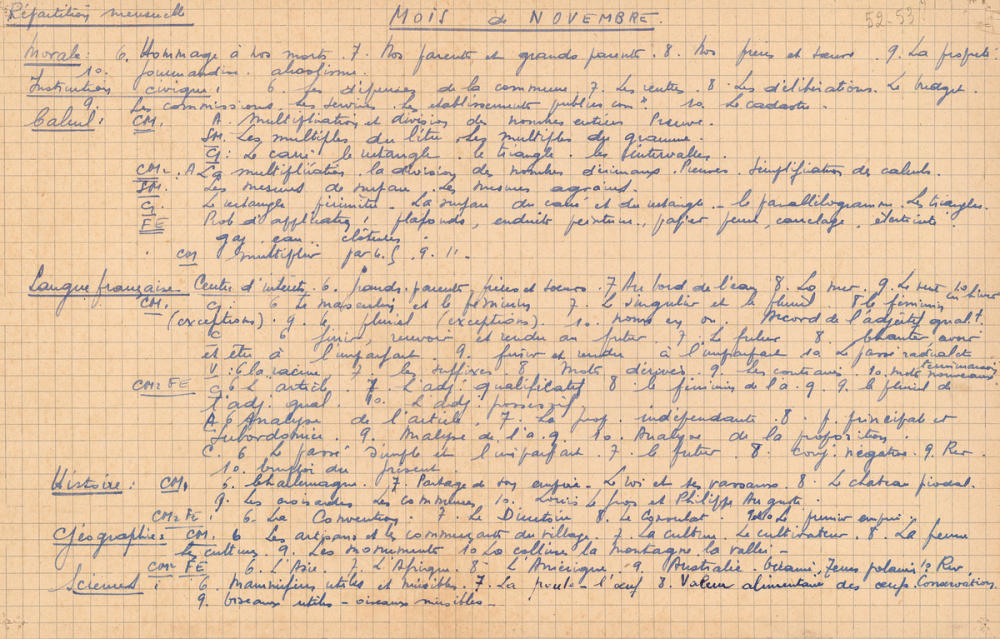 Répartition mensuelle
MOIS de NOVEMBRE.
52-53
Morale : 6. Hommage à nos morts. 7. Nos parents et grands parents. 8. Nos frères et sœurs. 9. La propreté.
10. gourmandise. alcoolisme.
Instruction civique : 6. Les dépenses de la commune 7. Les recettes. 8. Les délibérations. Le budget.
9. Les commissions. Les services. Les établissements publics 10. Le cadastre.
Calcul : CM. A. Multiplication et division des nombres entiers. Preuve.
SM. Les multiples du litre. Les multiples du gramme.
G : Le carré. le rectangle. le triangle. les intervalles.
CM2. A La multiplication. la division des nombres décimaux. Preuves. Simplification des calculs.
SM. Les mesures de surface. Les mesures agraires.
G. Le rectangle périmètre. La surface du carré et du rectangle. le parallélogramme. Les triangles.
FE Prob. d'application : plafonds, enduits peinture, papier peint, carrelage, électricité
gaz. eau. clôtures.
CM multiplier par 6. 9. 11.
Langue française Centre d'intérêts. 6. grands. parents, frères et sœurs. 7 Au bord de l'eau 8. La mer. 9. Le vent 10 hiver
CM. G : 6 Le masculin et le féminin 7. Le singulier et le pluriel. 8 le féminin
(exceptions). 9. le pluriel (exceptions). 10. noms en ou. Accord de l'adjectif qual.
C 6 finir, recevoir et rendre au futur. 7. Le futur 8. Chanter, avoir
et être à l'imparfait. 9. finir et rendre à l'imparfait 10 Le passé radical et terminaison
V : 6 la racine, 7. les suffixes. 8 mots dérivés 9. Les contraires 10. mots nouveaux
CM2 FE G 6 L'article. 7. L'adj. qualificatif 8. le féminin de l'a. q. 9. le pluriel de
l'adj. qual. 10. L'adj. possessif
A 6 Analyse de l'article. 7. La prop. indépendante. 8. p. principale et
subordonnée. 9. Analyse de l'a. q. 10. Analyse de la proposition.
C. 6 Le passé simple et l'imparfait. 7. le futur 8. Conj. négative. 9. Rev.
10. Emploi du présent.
Histoire : CM. 6. Charlemagne. 7. Partage de son empire. Le roi et ses vassaux. 8. Le chateau féodal.
9. Les croisades Les communes 10. Louis le gros et Philippe Auguste.
CM2 FE : 6. La Convention. 7. Le Directoire 8. Le Consulat. Le premier empire.
Géographie : CM. 6 Les artisans et les commerçants du village. 7. La culture. Le cultivateur. 8. La ferme
Les cultures. 9. Les monuments. 10 La colline la montagne la vallée.
CM2 FE. 6. L'Asie. 7. L'Afrique. 8. L'Amérique. 9. Australie. Océanie, Terres polaires 10 Rev
Sciences : 6. Mammifères utiles et nuisibles. 7. La poule - l'œuf 8. Valeur alimentaire des œufs. Conservation.
9. Oiseaux utiles - oiseaux nuisibles.